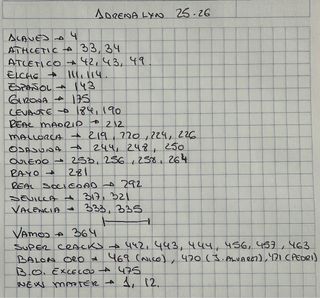 ADRENALYN 25-26
ALAVES → 4
ATHLETIC → 33, 34
ATLETICO → 42, 43, 49
ELCHE → 111, 114
ESPAÑOL → 143
GIRONA → 175
LEVANTE → 184, 190
REAL MADRID → 212
MALLORCA → 219, 220, 224, 226
OSASUNA → 244, 248, 250
OVIEDO → 253, 256, 258, 264
RAYO → 281
REAL SOCIEDAD → 292
SEVILLA → 317, 321
VALENCIA → 333, 335
VAMOS → 364
SUPER CRACKS → 442, 443, 444, 456, 457, 463
BALON ORO → 469 (NICO), 470 (J. ALVAREZ), 471 (PEDRI)
B.O. EXCELLO → 475
NEW MASTER → 1, 12.